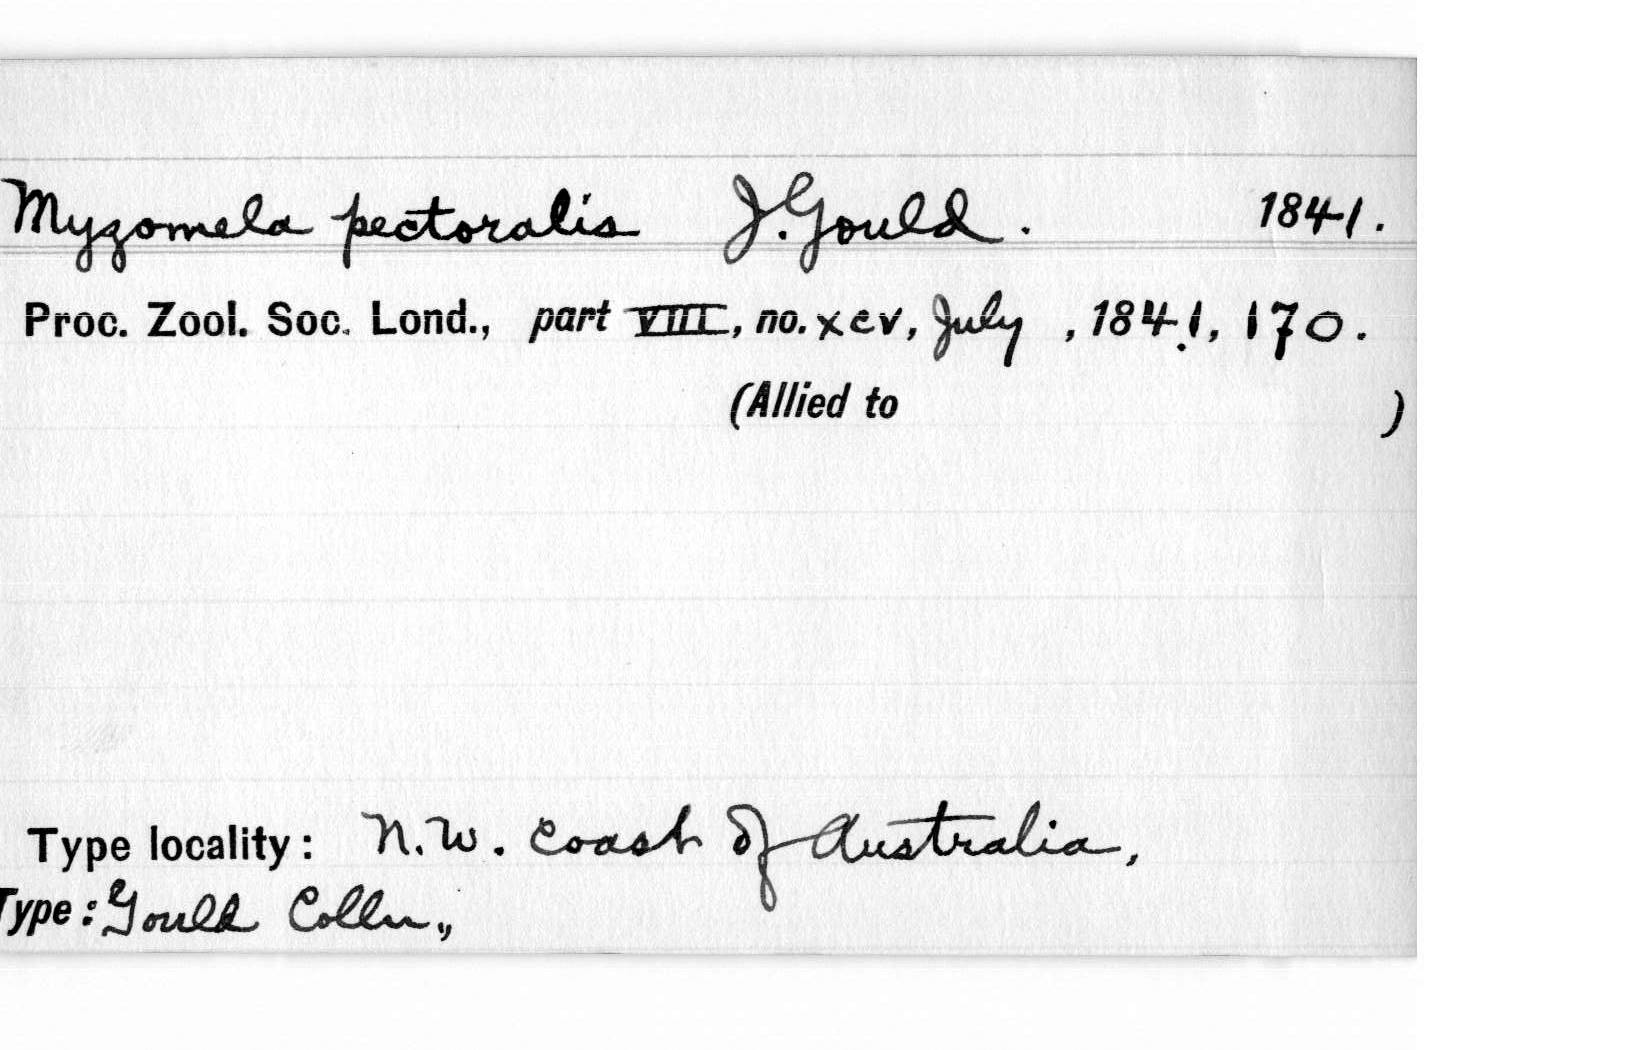 Myzomela pectoralis J. Gould. 1841.
Proc. Zool. Soc. Lond., part VIII, no. xcv, July, 1841, 170.
(Allied to )
Type locality: N.W. Coast of Australia,
Type: Gould Colln.,